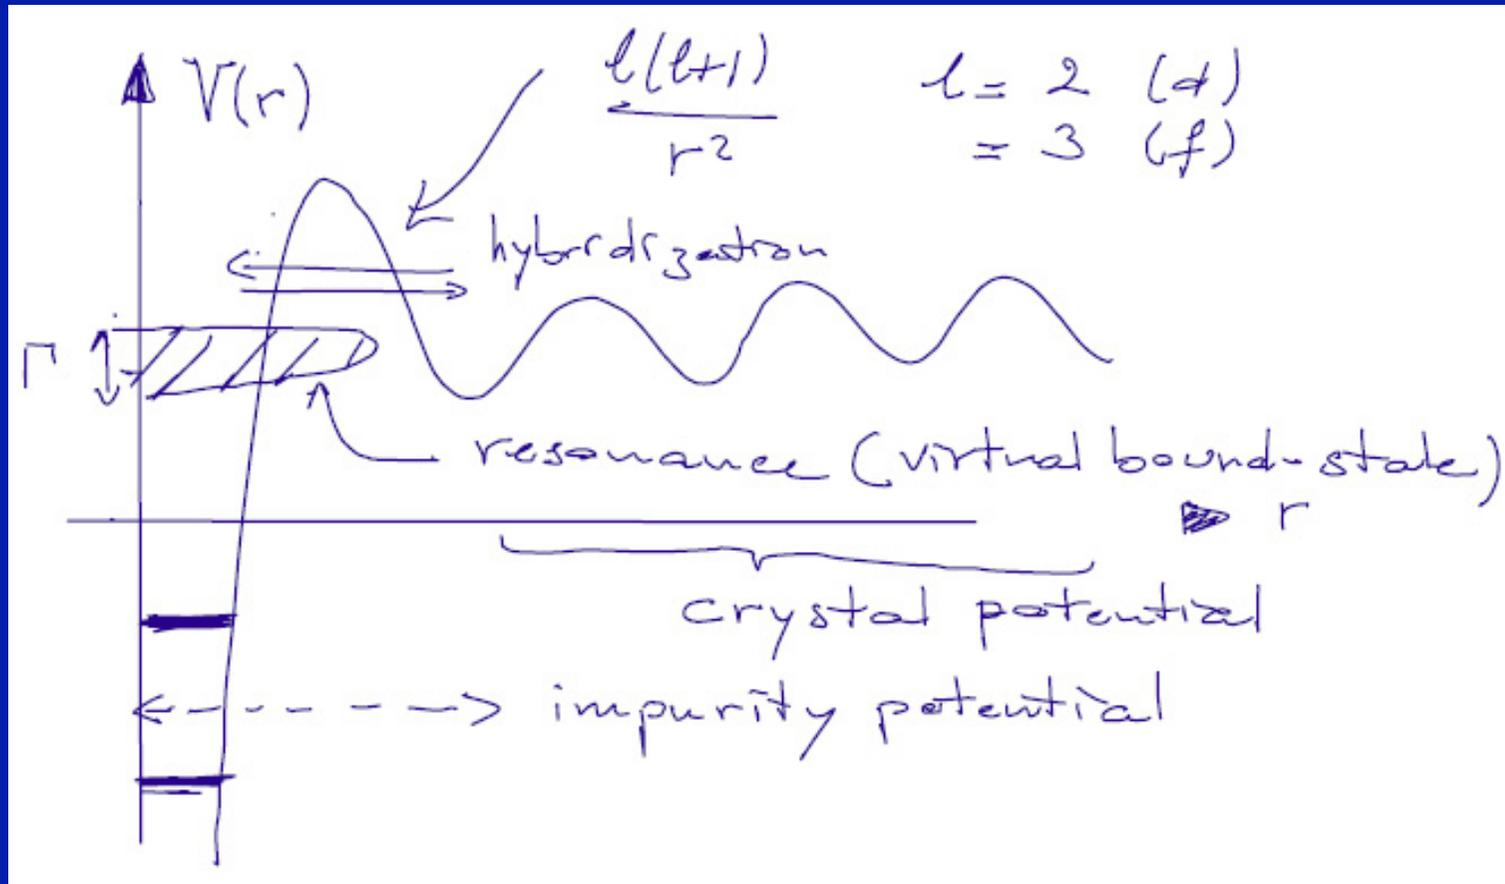 V(r)
l(l+1)
r2
l = 2 (d)
= 3 (f)
hybridization
Γ
resonance (virtual bound-state)
r
crystal potential
impurity potential